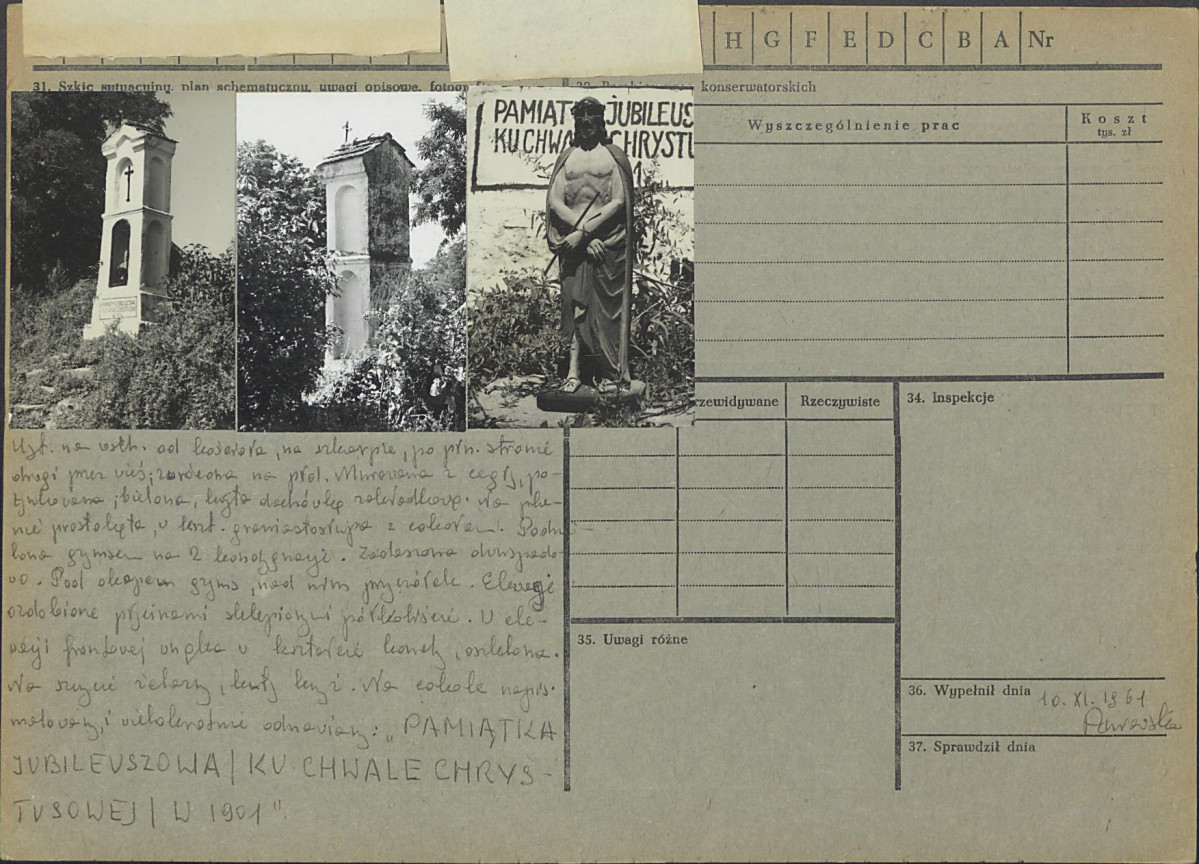 H G F E D C B A Nr
31. Szkic sytuacyjny, plan schematyczny, uwagi opisowe, fotogr
konserwatorskich
Wyszczególnienie prac
Koszt
tys. zł
PAMIĄT JUBILEUS
KU CHWA CHRYSTU
rzewidywane
Rzeczywiste
34. Inspekcje
Usyt. na wsch. od kościoła, na skarpie, po płn. stronie
drogi przez wieś; zwrócona na płd. Murowana z cegły, po-
tynkowana, bielona, kryta dachówką zakładkową. Na pla-
nie prostokąta, w kszt. graniastosłupa z cokołem. Podzie-
lona gzymsem na 2 kondygnacje. Zadaszona dwuspado-
wo. Pod okapem gzyms, nad nim przyczółek. Elewacje
ozdobione płycinami sklepionymi półkoliście. W ele-
wacji frontowej wnęka w kształcie konchy, oszklona.
Na szczycie żelazny, kuty krzyż. Na cokole napis
malowany i wielokrotnie odnawiany: „PAMIĄTKA
JUBILEUSZOWA / KU CHWALE CHRYS-
TUSOWEJ / W 1901".
35. Uwagi różne
36. Wypełnił dnia 10. XI. 1961
37. Sprawdził dnia